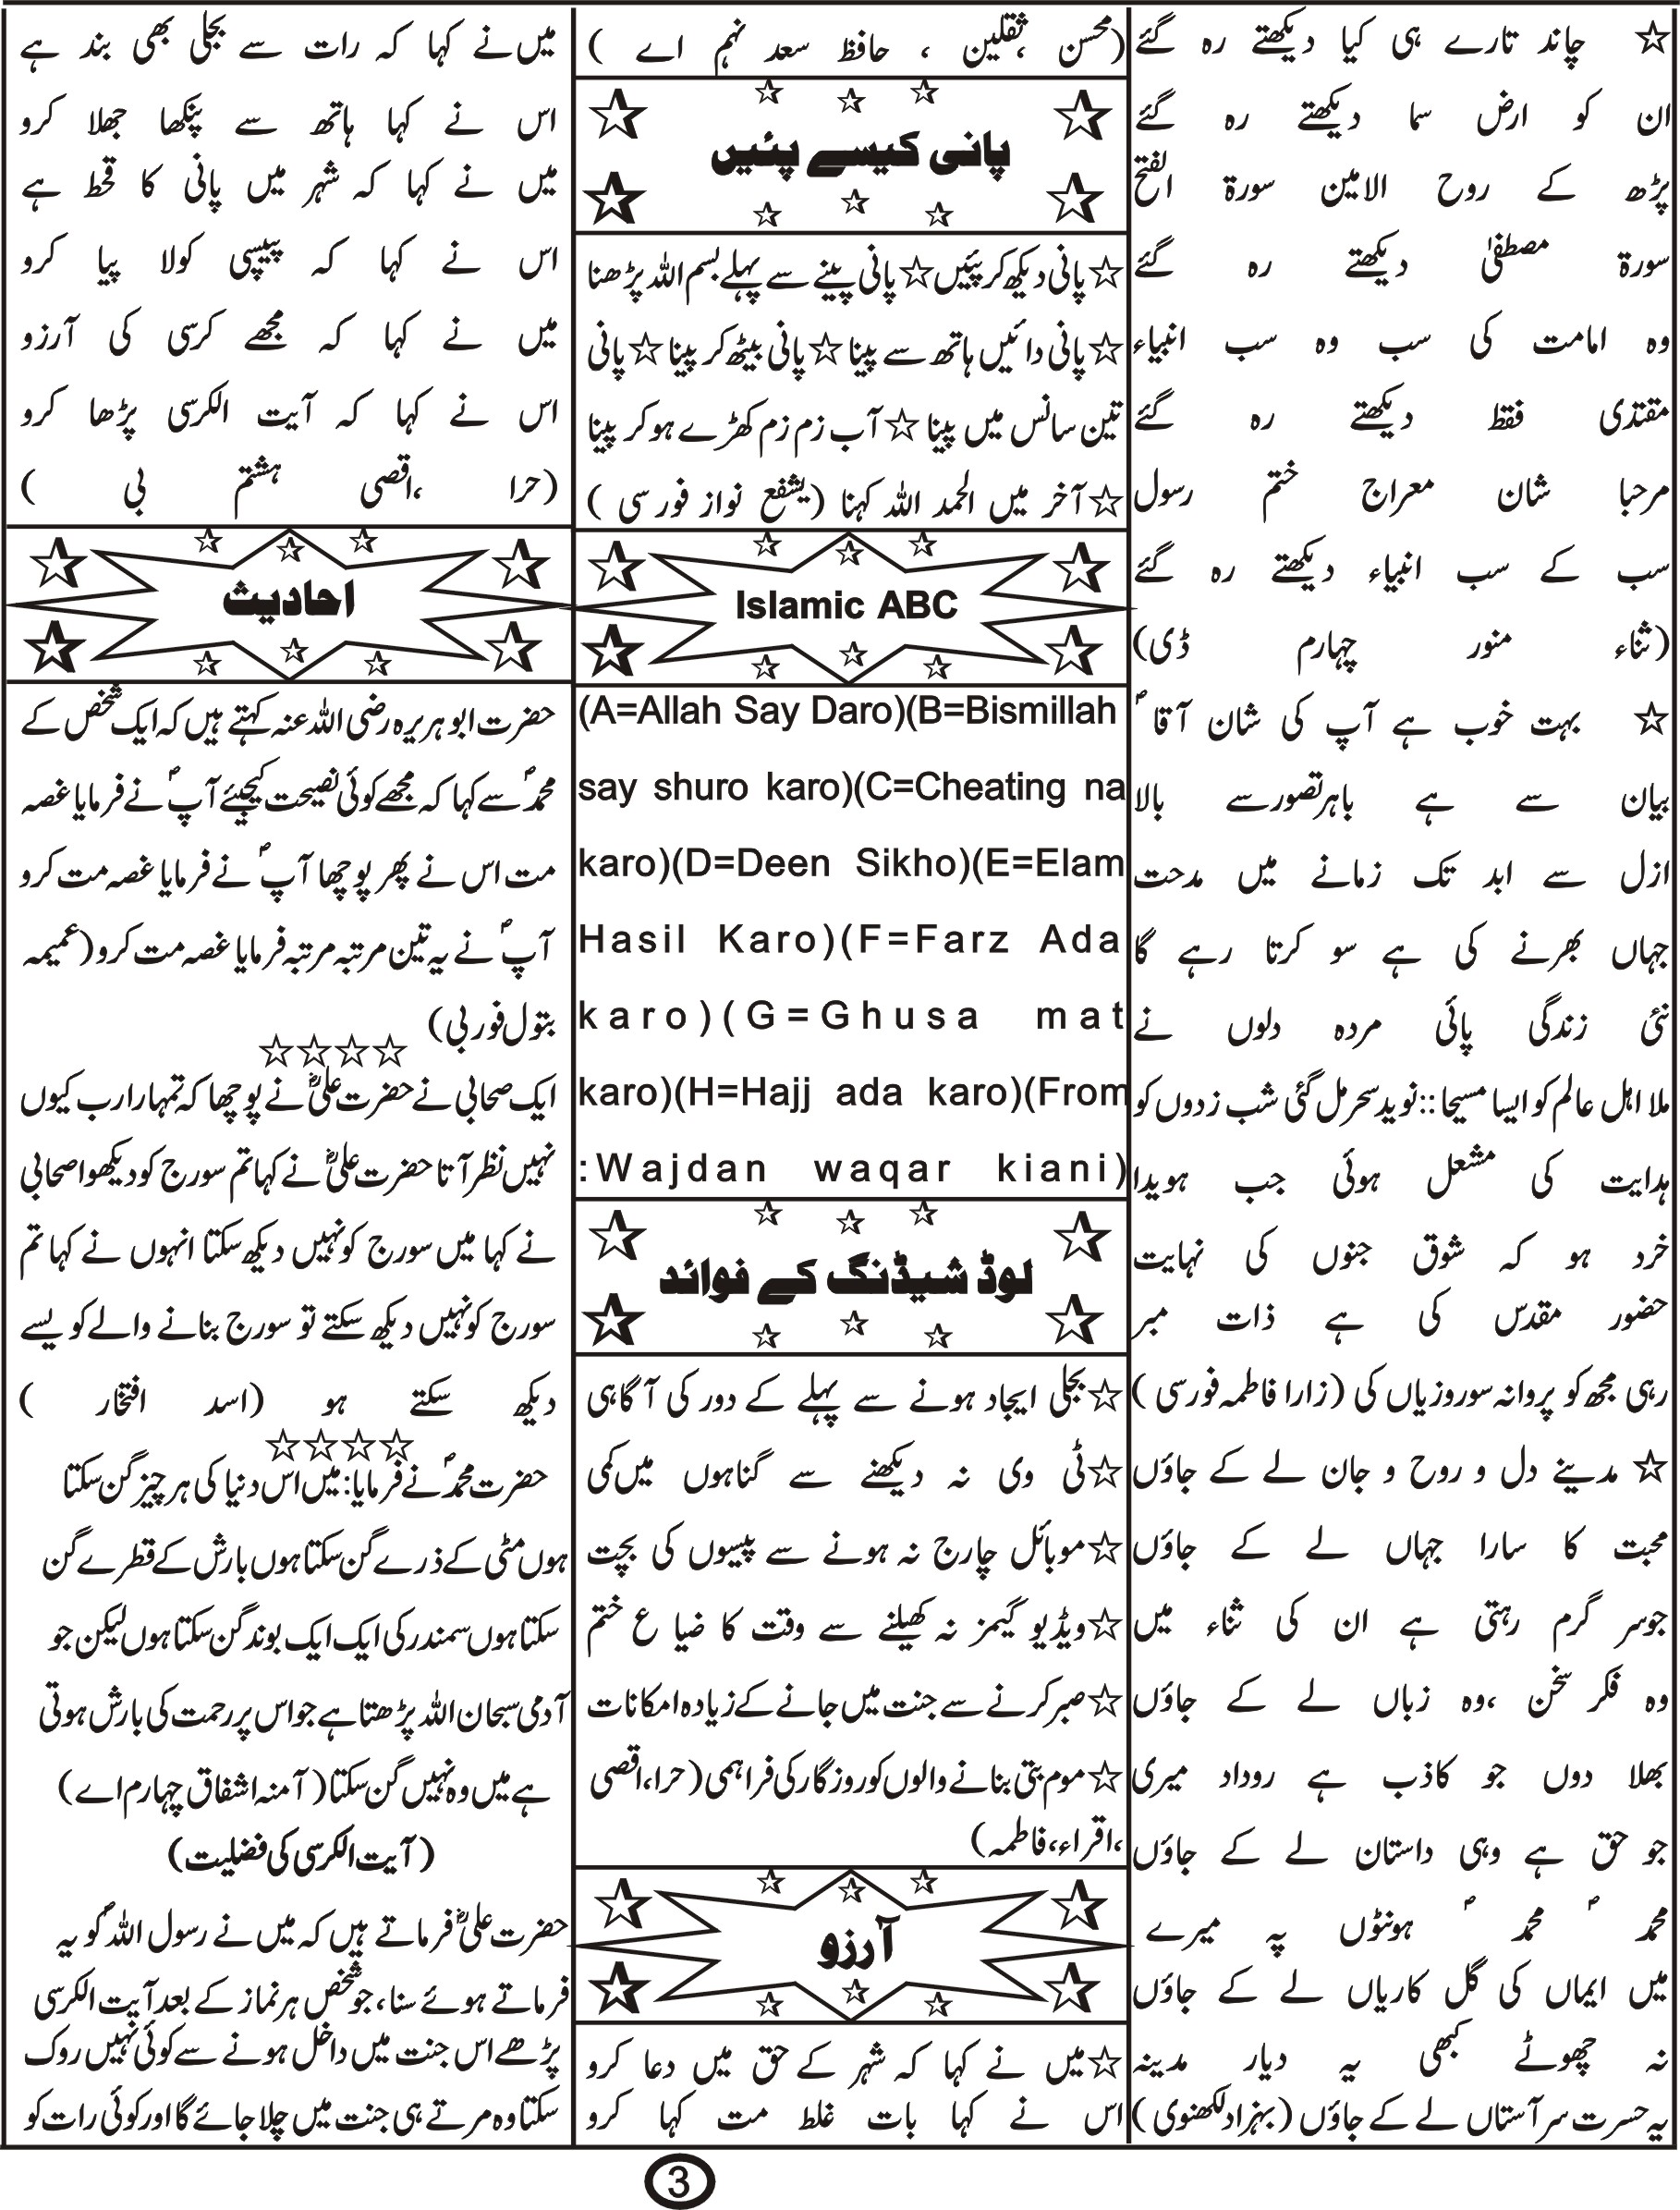 ☆ چاند تارے ہی کیا دیکھتے رہ گئے
ان کو ارض سما دیکھتے رہ گئے
پڑھ کے روح الامین سورۃ الفتح
سورۃ مصطفیٰ دیکھتے رہ گئے
وہ امامت کی سب وہ سب انبیاء
مقتدی فقط دیکھتے رہ گئے
مرحبا شان معراج ختم رسول
سب کے سب انبیاء دیکھتے رہ گئے
(ثناء منور چہارم ڈی)
☆ بہت خوب ہے آپ کی شان آقا ؐ
بیان سے ہے باہر تصور سے بالا
ازل سے ابد تک زمانے میں مدحت
جہاں بھرنے کی ہے سو کرتا رہے گا
نئی زندگی پائی مردہ دلوں نے
ملا اہل عالم کو ایسا مسیحا :: نوید سحر مل گئی شب زدوں کو
ہدایت کی مشعل ہوئی جب ہویدا
خرد ہو کہ شوق جنوں کی نہایت
حضور مقدس کی ہے ذات مبر
رہی مجھ کو پروانہ سوروزیاں کی (زارا فاطمہ فورسی)
☆ مدینے دل و روح و جان لے کے جاؤں
محبت کا سارا جہاں لے کے جاؤں
جوسر گرم رہتی ہے ان کی ثناء میں
وہ فکر سخن ،وہ زباں لے کے جاؤں
بھلا دوں جو کاذب ہے روداد میری
جو حق ہے وہی داستان لے کے جاؤں
محمد ؐ محمد ؐ ہونٹوں پہ میرے
میں ایماں کی گل کاریاں لے کے جاؤں
نہ چھوٹے کبھی یہ دیار مدینہ
یہ حسرت سر آستاں لے کے جاؤں (بہزاد لکھنوی)
(محسن ،ثقلین ، حافظ سعد نہم اے)
پانی کیسے پئیں
☆پانی دیکھ کر پئیں☆پانی پینے سے پہلے بسم اللہ پڑھنا
☆پانی دائیں ہاتھ سے پینا☆پانی بیٹھ کر پینا☆پانی
تین سانس میں پینا☆آب زم زم کھڑے ہو کر پینا
☆آخر میں الحمد اللہ کہنا (یشفع نواز فورسی)
Islamic ABC
(A=Allah Say Daro)(B=Bismillah
say shuro karo)(C=Cheating na
karo)(D=Deen Sikho)(E=Elam
Hasil Karo)(F=Farz Ada
karo)(G=Ghusa mat
karo)(H=Hajj ada karo)(From
:Wajdan waqar kiani)
لوڈ شیڈنگ کے فوائد
☆بجلی ایجاد ہونے سے پہلے کے دور کی آگاہی
☆ٹی وی نہ دیکھنے سے گناہوں میں کمی
☆موبائل چارج نہ ہونے سے پیسوں کی بچت
☆ویڈیو گیمز نہ کھیلنے سے وقت کا ضیا ع ختم
☆صبر کرنے سے جنت میں جانے کے زیادہ امکانات
☆موم بتی بنانے والوں کو روزگار کی فراہمی (حرا،اقصی
،اقراء،فاطمہ)
آرزو
☆میں نے کہا کہ شہر کے حق میں دعا کرو
اس نے کہا بات غلط مت کہا کرو
میں نے کہا کہ رات سے بجلی بھی بند ہے
اس نے کہا ہاتھ سے پنکھا جھلا کرو
میں نے کہا کہ شہر میں پانی کا قحط ہے
اس نے کہا کہ پیپسی کولا پیا کرو
میں نے کہا کہ مجھے کرسی کی آرزو
اس نے کہا کہ آیت الکرسی پڑھا کرو
(حرا ،اقصی ہشتم بی)
احادیث
حضرت ابو ہریرہ رضی اللہ عنہ کہتے ہیں کہ ایک شخص کے
محمدؐ سے کہا کہ مجھے کوئی نصیحت کیجیئے آپؐ نے فرمایا غصہ
مت اس نے پھر پوچھا آپؐ نے فرمایا غصہ مت کرو
آپؐ نے یہ تین مرتبہ مرتبہ فرمایا غصہ مت کرو (عمیمہ
بتول فور بی)
☆☆☆☆
ایک صحابی نے حضرت علیؓ نے پوچھا کہ تمہارا رب کیوں
نہیں نظر آتا حضرت علیؓ نے کہا تم سورج کو دیکھو اصحابی
نے کہا میں سورج کو نہیں دیکھ سکتا انہوں نے کہا تم
سورج کو نہیں دیکھ سکتے تو سورج بنانے والے کو یسے
دیکھ سکتے ہو (اسد افتخار)
☆☆☆☆
حضرت محمدؐ نے فرمایا: میں اس دنیا کی ہر چیز گن سکتا
ہوں مٹی کے ذرے گن سکتا ہوں بارش کے قطرے گن
سکتا ہوں سمندر کی ایک ایک بوند گن سکتا ہوں لیکن جو
آدمی سبحان اللہ پڑھتا ہے جو اس پر رحمت کی بارش ہوتی
ہے میں وہ نہیں گن سکتا (آمنہ اشفاق چہارم اے)
(آیت الکرسی کی فضلیت)
حضرت علیؓ فرماتے ہیں کہ میں نے رسول اللہؐ کو یہ
فرماتے ہوئے سنا، جو شخص ہر نماز کے بعد آیت الکرسی
پڑھے اس جنت میں داخل ہونے سے کوئی نہیں روک
سکتا وہ مرتے ہی جنت میں چلا جائے گا اور کوئی رات کو
3